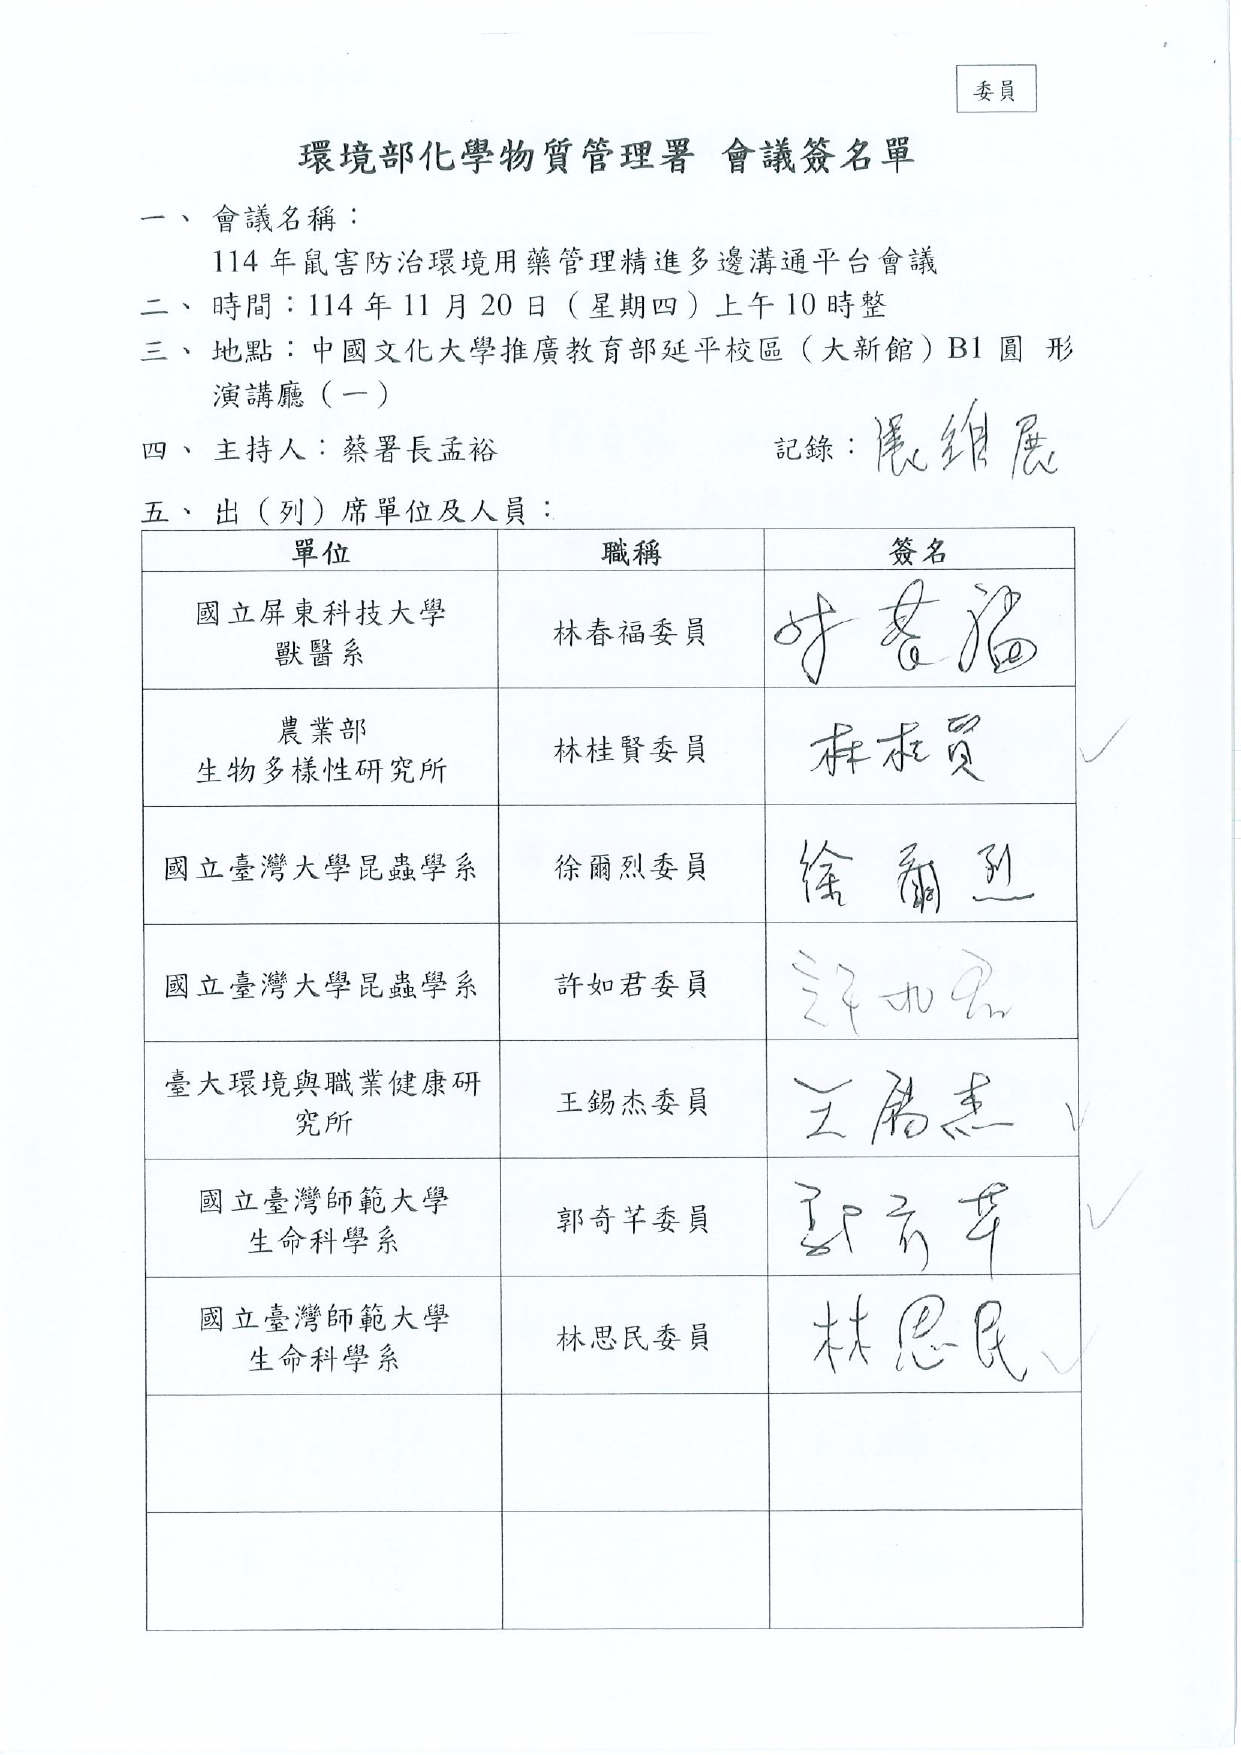 委員
環境部化學物質管理署 會議簽名單
一、 會議名稱：
114年鼠害防治環境用藥管理精進多邊溝通平台會議
二、 時間：114年11月20日（星期四）上午10時整
三、 地點：中國文化大學推廣教育部延平校區（大新館）B1圓 形
演講廳（一）
四、 主持人：蔡署長孟裕 記錄：張維展
五、 出（列）席單位及人員：
單位 職稱 簽名
國立屏東科技大學
獸醫系 林春福委員 林春福
農業部
生物多樣性研究所 林桂賢委員 林桂賢
國立臺灣大學昆蟲學系 徐爾烈委員 徐爾烈
國立臺灣大學昆蟲學系 許如君委員 許如君
臺大環境與職業健康研
究所 王錫杰委員 王錫杰
國立臺灣師範大學
生命科學系 郭奇芊委員 郭奇芊
國立臺灣師範大學
生命科學系 林思民委員 林思民